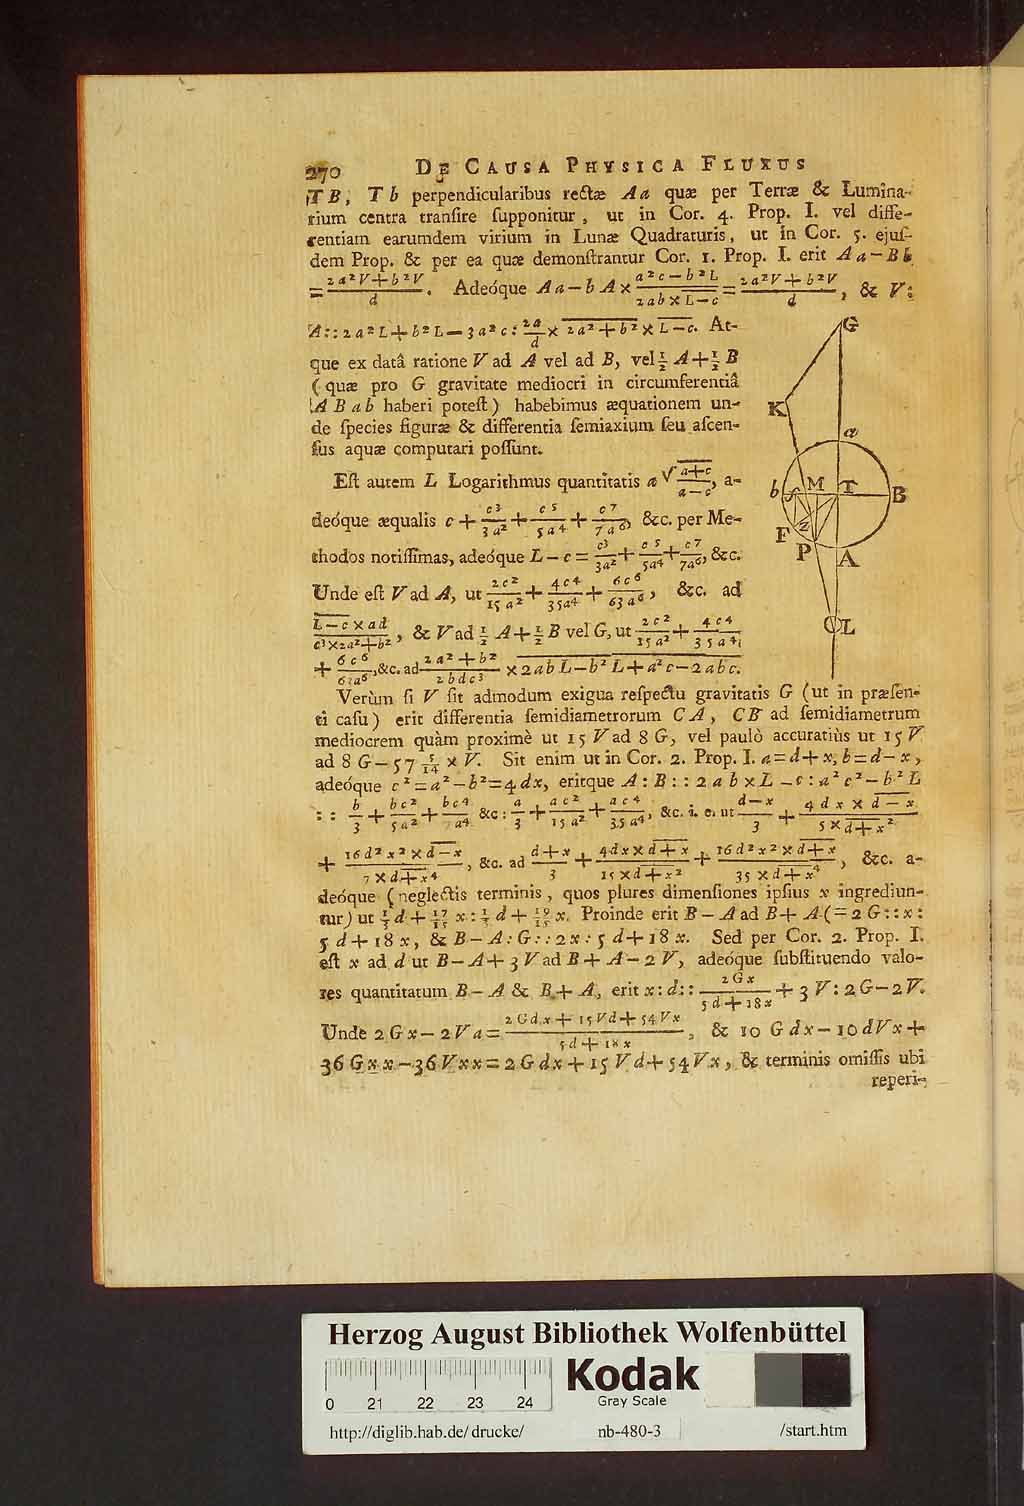 270 DE CAUSA PHYSICA FLUXUS
TB, Tb perpendicularibus rectæ Aa quæ per Terræ & Lumina-
rium centra transire supponitur, ut in Cor. 4. Prop. I. vel diffe-
rentiam earumdem virium in Lunæ Quadraturis, ut in Cor. 5. ejus-
dem Prop. & per ea quæ demonstrantur Cor. 1. Prop. I. erit Aa−Bb
= (2a²V+b²V)/d. Adeóque Aa−bA× (a²c−b²L)/(2ab×L−c) = (2a²V+b²V)/d, & V:
A::2a²L+b²L−3a²c: 2a/d × 2a²+b²×L−c. At-
que ex datâ ratione V ad A vel ad B, vel ½ A+½ B
(quæ pro G gravitate mediocri in circumferentiâ
ABab haberi potest) habebimus æquationem un-
de species figuræ & differentia semiaxium seu ascen-
sus aquæ computari possunt.
Est autem L Logarithmus quantitatis a √(a+c)/(a−c), a-
deóque æqualis c + c³/3a² + c⁵/5a⁴ + c⁷/7a⁶, &c. per Me-
thodos notissimas, adeóque L−c = c³/3a² + c⁵/5a⁴ + c⁷/7a⁶, &c.
Unde est V ad A, ut 2c²/15a² + 4c⁴/35a⁴ + 6c⁶/63a⁶, &c. ad
(L−c×ad)/(c³×2a²+b²), & V ad ½ A+½ B vel G, ut 2c²/15a² + 4c⁴/35a⁴
+ 6c⁶/63a⁶, &c. ad (2a²+b²)/(2bdc³) × 2abL−b²L+a²c−2abc.
Verùm si V sit admodum exigua respectu gravitatis G (ut in præsen-
ti casu) erit differentia semidiametrorum CA, CB ad semidiametrum
mediocrem quàm proximè ut 15 V ad 8 G, vel paulò accuratiùs ut 15 V
ad 8 G−57 5/14 × V. Sit enim ut in Cor. 2. Prop. I. a=d+x, b=d−x,
adeóque c²=a²−b²=4dx, eritque A:B::2ab×L−c:a²c²−b²L
:: b/3 + bc²/5a² + bc⁴/7a⁴ &c: a/3 + ac²/15a² + ac⁴/35a⁴, &c. i. e. ut (d−x)/3 + (4dx×d−x)/(5×d+x²)
+ (16d²x²×d−x)/(7×d+x⁴), &c. ad (d+x)/3 + (4dx×d+x)/(15×d+x²) + (16d²x²×d+x)/(35×d+x⁴), &c. a-
deóque (neglectis terminis, quos plures dimensiones ipsius x ingrediun-
tur) ut ⅓ d + 17/15 x : ⅓ d + 19/15 x. Proinde erit B−A ad B+A (=2G::x:
5d+18x, & B−A:G::2x:5d+18x. Sed per Cor. 2. Prop. I.
est x ad d ut B−A+3V ad B+A−2V, adeóque substituendo valo-
res quantitatum B−A & B+A, erit x:d:: 2Gx/(5d+18x) + 3V:2G−2V.
Unde 2Gx−2Va = (2Gdx+15Vd+54Vx)/(5d+18x), & 10Gdx−10dVx+
36Gxx−36Vxx=2Gdx+15Vd+54Vx, & terminis omissis ubi
reperi-
G
K
a
b M T B
f
F Z
P A
L
Herzog August Bibliothek Wolfenbüttel
Kodak
Gray Scale
0 21 22 23 24
http://diglib.hab.de/drucke/ nb-480-3 /start.htm